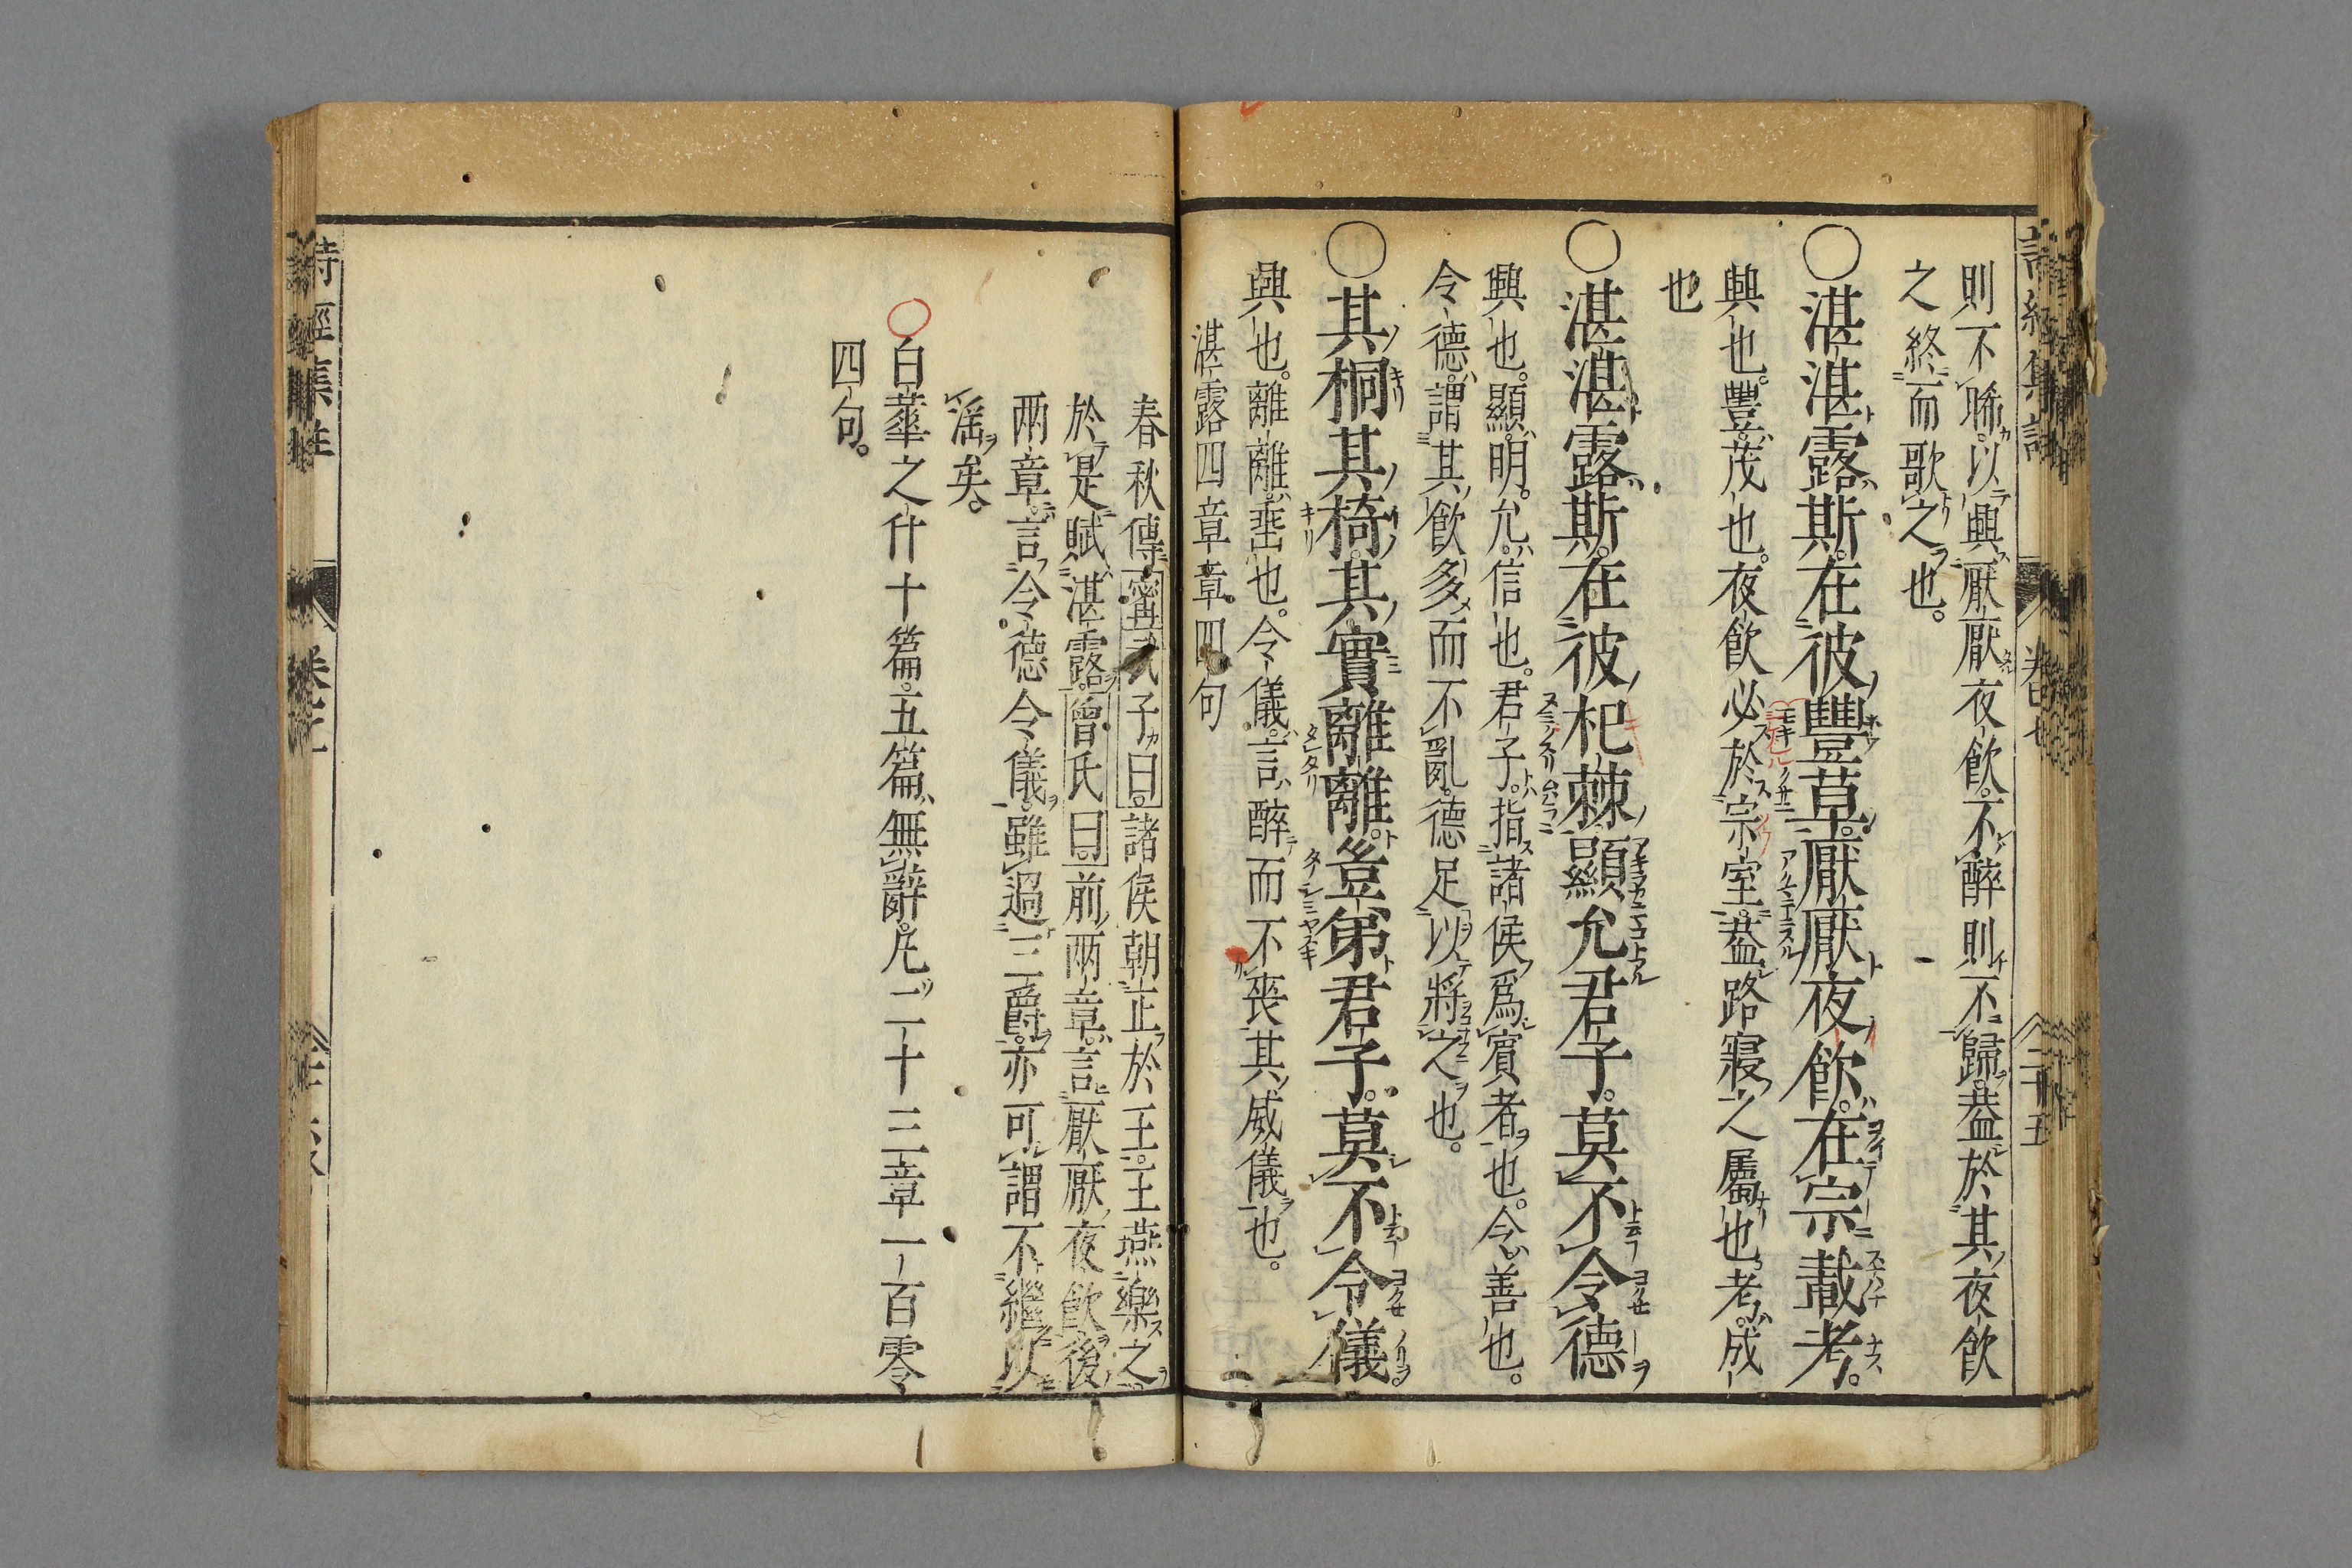 則不晞以興厭厭夜飲不醉則不歸葢於其夜飲
之終而歌之也。
○湛湛露斯。在彼豐草。厭厭夜飲。在宗載考。
興也。豐茂也。夜飲必於宗室。葢路寢之屬也考。成
也
○湛湛露斯。在彼杞棘。顯允君子。莫不令德
興也。顯。明。允。信也。君子。指諸侯爲賓者也。令。善也。
令德。謂其飲多而不亂。德足以將之也。
○其桐其椅。其實離離。豈弟君子。莫不令儀。
興也。離離。垂也。令儀。言醉而不喪其威儀也。
湛露四章章四句
春秋傳甯武子曰。諸侯朝正於王。王燕樂之
於是賦湛露。曾氏曰前兩章。言厭厭夜飲後
兩章。言令德令儀。雖過三爵。亦可謂不繼以
淫矣。
○白華之什十篇。五篇無辭。凡二十三章一百零
四句。